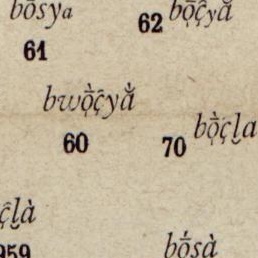 bōsya
61
62 bọ̀ç̑yằ
bwọ̀ç̑yằ
60
70 bọ̀çl̮a
çl̮à
959
bọ́sà